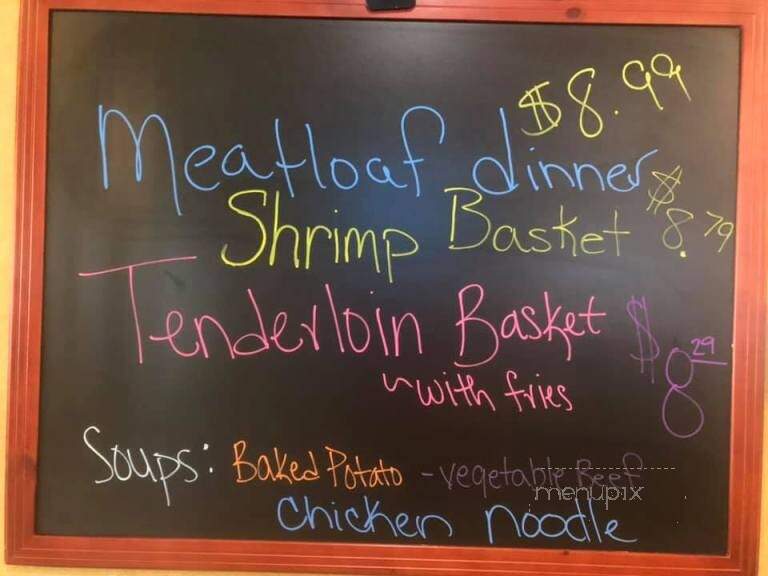 Meatloaf dinner $8.99
Shrimp Basket $8.79
Tenderloin Basket $8.29
~with fries
Soups: Baked Potato - vegetable Beef
chicken noodle
menupix